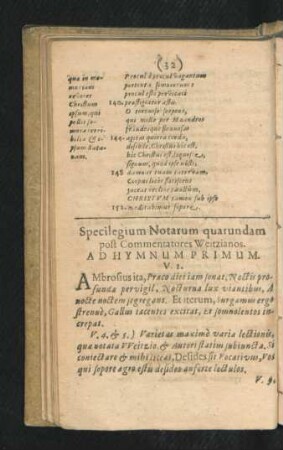 (32)
Procul ô procul vagantum
portenta somniorum:
procul esto pervicaci
140. præstigiator astu.
O tortuose serpens,
qui mille per Mæandros
fraudesque flexuosas
144. agitas quieta corda,
discede, Christus hic est,
hic Christus est, liquesce,
signum, quod ipse nosti,
148. damnat tuam catervam.
Corpus licet fatiscens
jaceat recline paullum,
CHRISTUM tamen sub ipso
152. meditabimur sopore.
Specilegium Notarum quarundam
post Commentatores Weitzianos.
AD HYMNUM PRIMUM.
V. 1.
AMbrosius ita, Præco diei jam sonat, Noctis pro-
funda pervigil, Nocturna lux viantibus, A
nocte noctem segregans. Et iterum, Surgamus ergo
strenuè, Gallus jacentes excitat, Et somnolentos in-
crepat.
V. 4. & 5.) Varietas maximè varia lectionis,
qua notata VVeitzio, & Autori statim subiuncta. Si
coniectare & mihi liceat, Desides sit Vocativus, Vos
qui sopore ægro estis desides auferte lectulos.
V. 9.